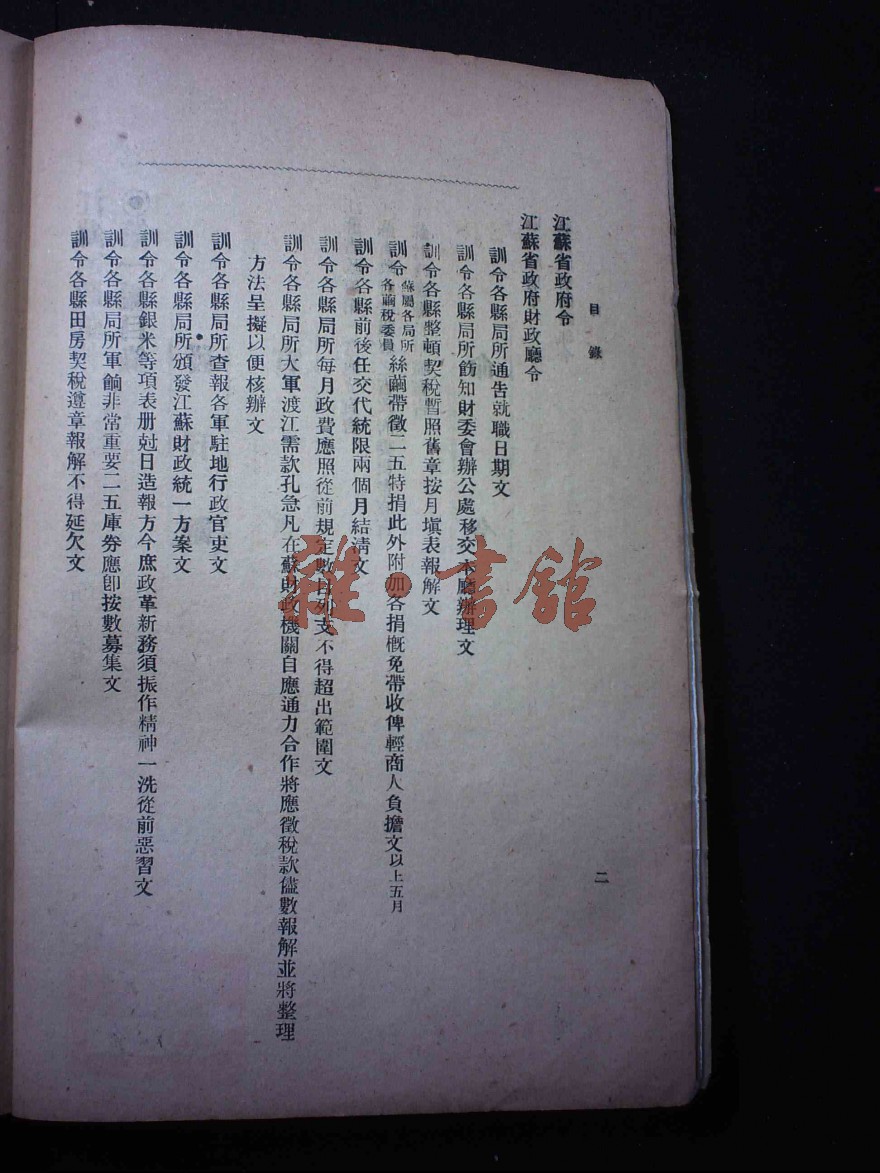 目錄
二
江蘇省政府令
江蘇省政府財政廳令
訓令各縣局所通告就職日期文
訓令各縣局所飭知財委會辦公處移交本廳辦理文
訓令各縣整頓契稅暫照舊章按月塡表報解文
訓令蘇屬各局所各繭稅委員絲繭帶徵二五特捐此外附加各捐槪免帶收俾輕商人負擔文以上五月
訓令各縣前後任交代統限兩個月結淸文
訓令各縣局所每月政費應照從前規定數目列支不得超出範圍文
訓令各縣局所大軍渡江需款孔急凡在蘇財政機關自應通力合作將應徵稅款儘數報解並將整理
方法呈擬以便核辦文
訓令各縣局所查報各軍駐地行政官吏文
訓令各縣局所頒發江蘇財政統一方案文
訓令各縣銀米等項表册尅日造報方今庶政革新務須振作精神一洗從前惡習文
訓令各縣局所軍餉非常重要二五庫劵應卽按數募集文
訓令各縣田房契稅遵章報解不得延欠文
雜·書館